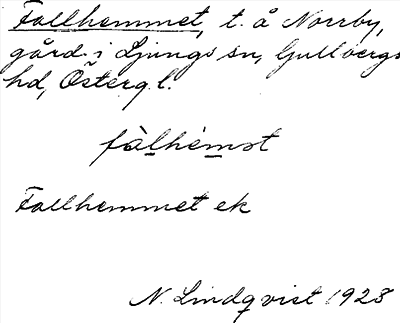 Fallhemmet, t. å Norrby,
gård i Ljungs sn, Gullbergs
hd, Östergl.
fàlhém̲ət
Fallhemmet ek
N. Lindqvist 1928